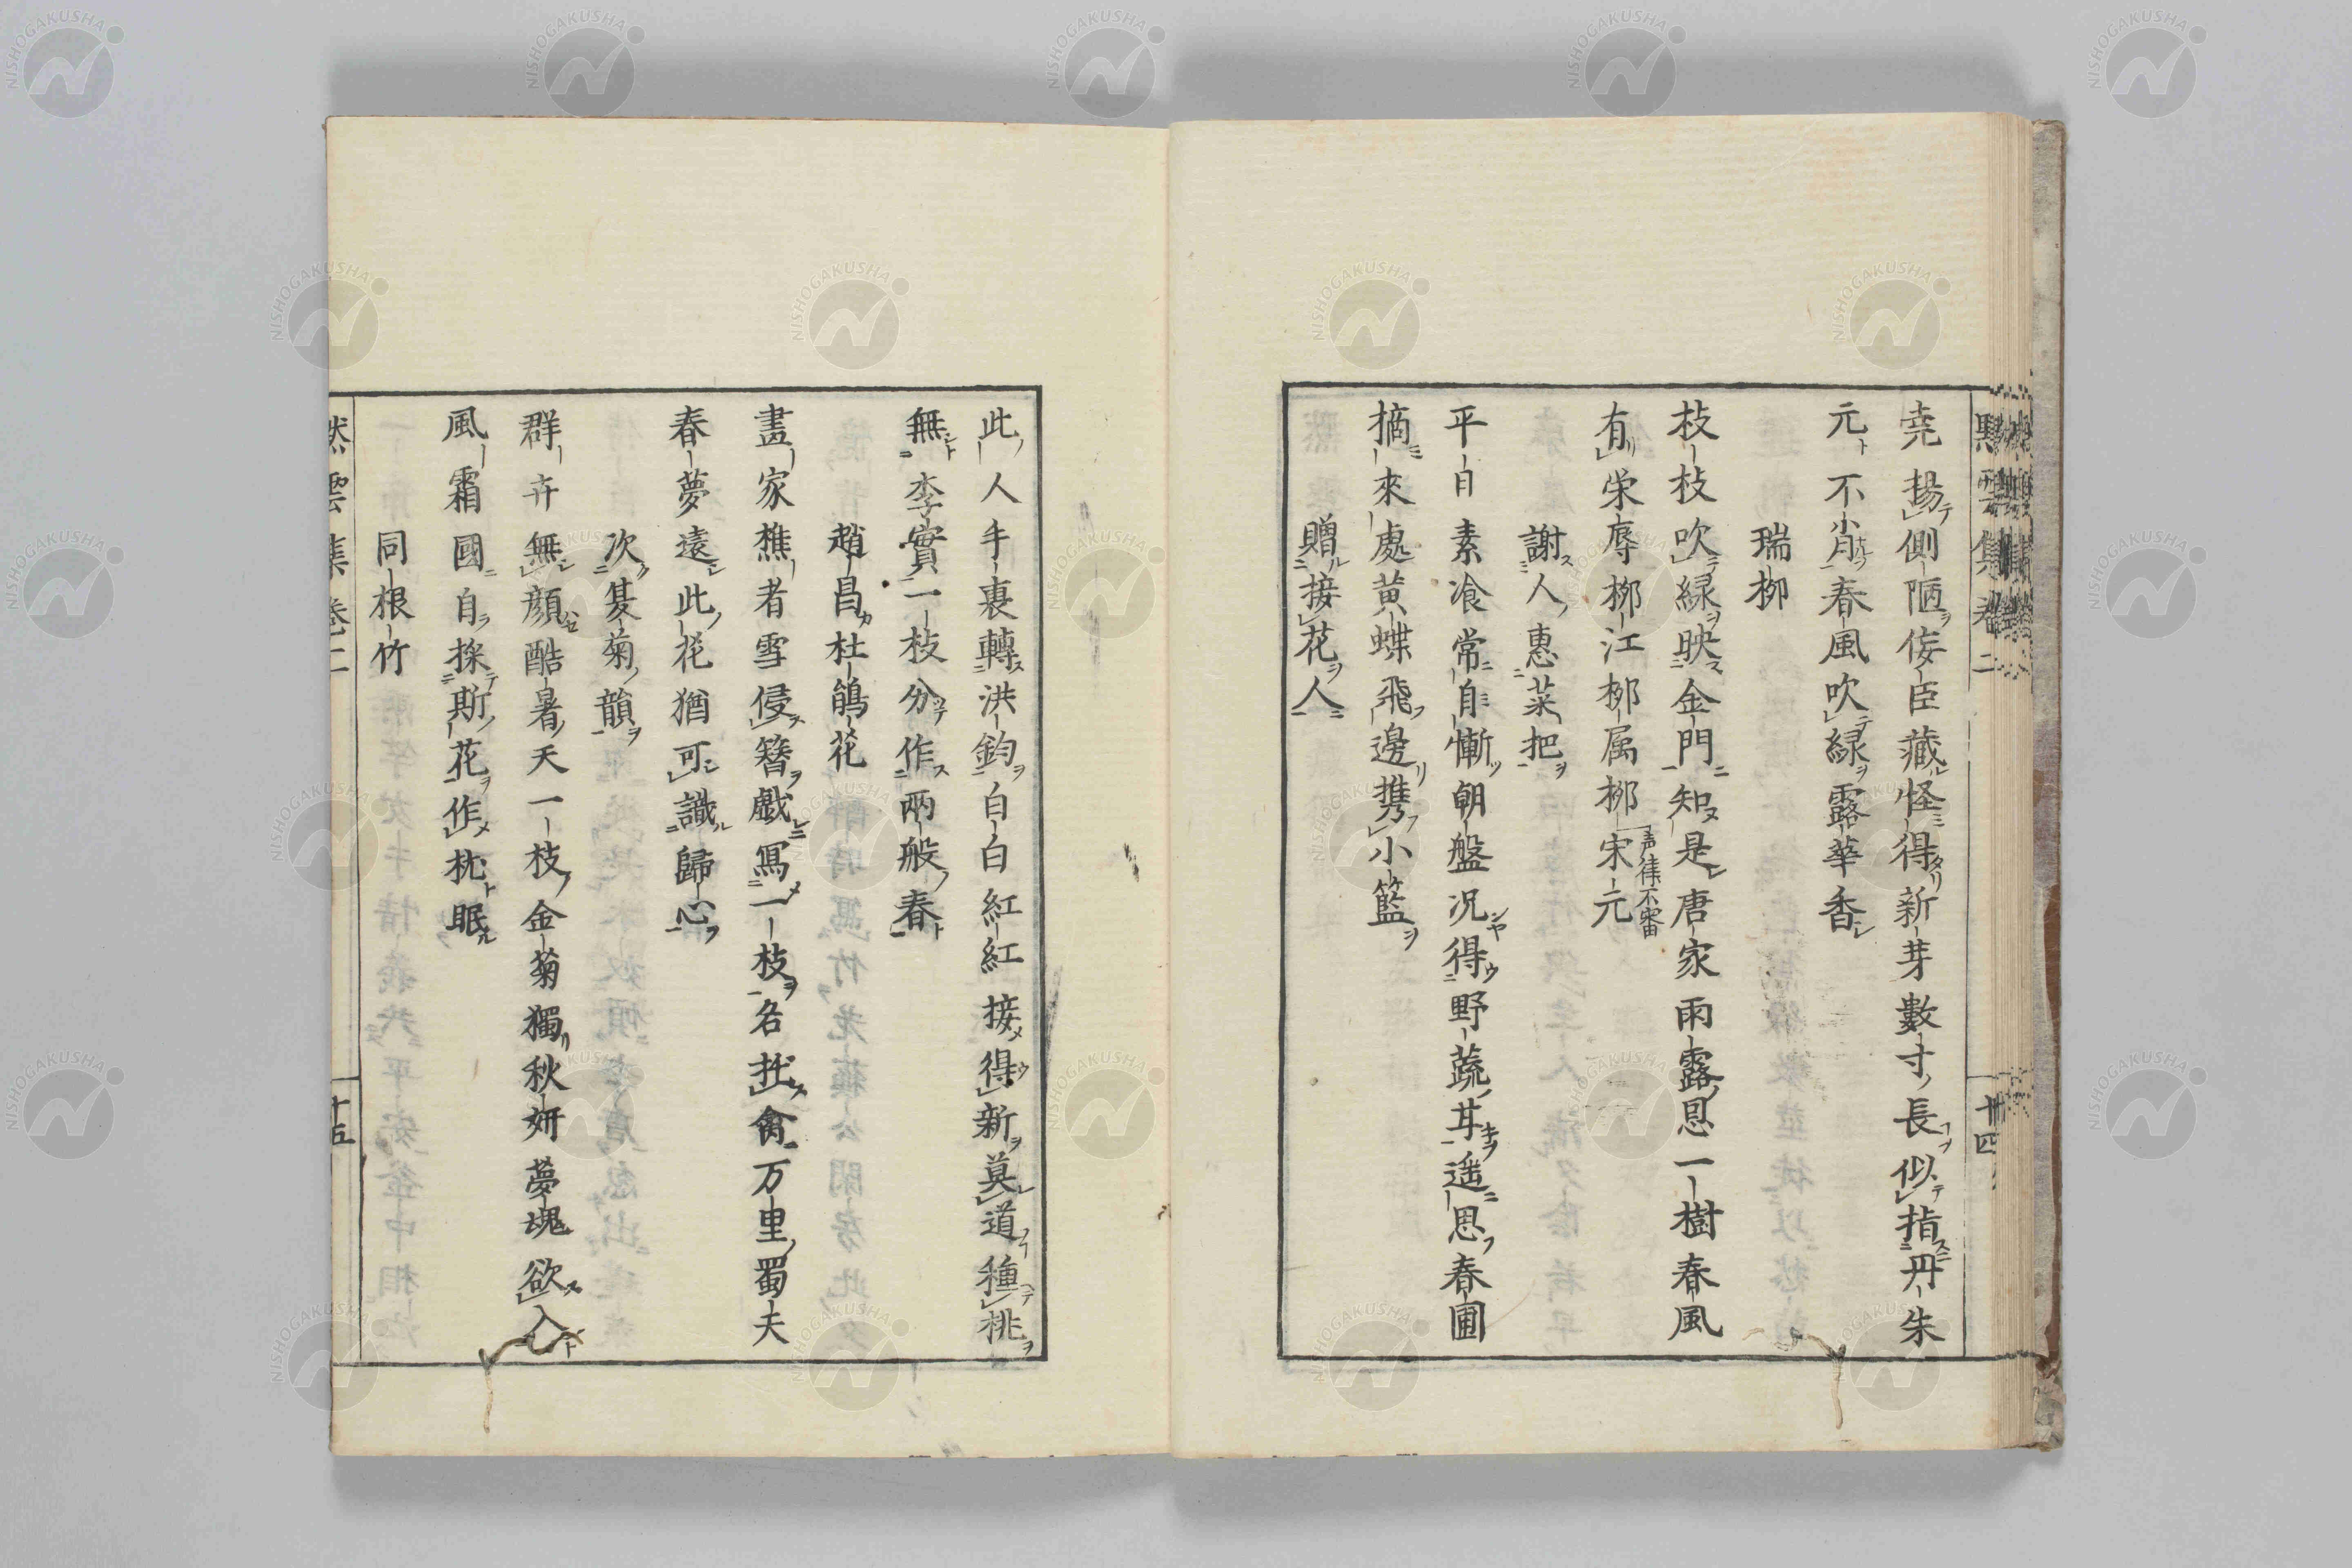 尭揚側陋侫臣藏怪得新芽數寸長似指丹朱
元不肖春風吹緑露華香
瑞栁
枝枝吹緑映金門知是唐家雨露恩一樹春風
有栄辱栁江栁属栁宋元
謝人惠菜把
平日素飡常自慚朝盤况得野蔬甘遥思春圃
摘來處黄蝶飛邊携小籃
贈接花人
此人手裏轉洪鈞白白紅紅接得新莫道種桃
無李實一枝分作兩般春
趙昌杜鵑花
畫家樵者雪侵簪戯寫一枝名拙禽万里蜀夫
春夢遠此花猶可識歸心
次夏菊韻
群卉無顔酷暑天一枝金菊獨秋妍夢魂欲入
風霜國自採斯花作枕眠
同根竹
默雲集卷二
十五
NISHOGAKUSHA